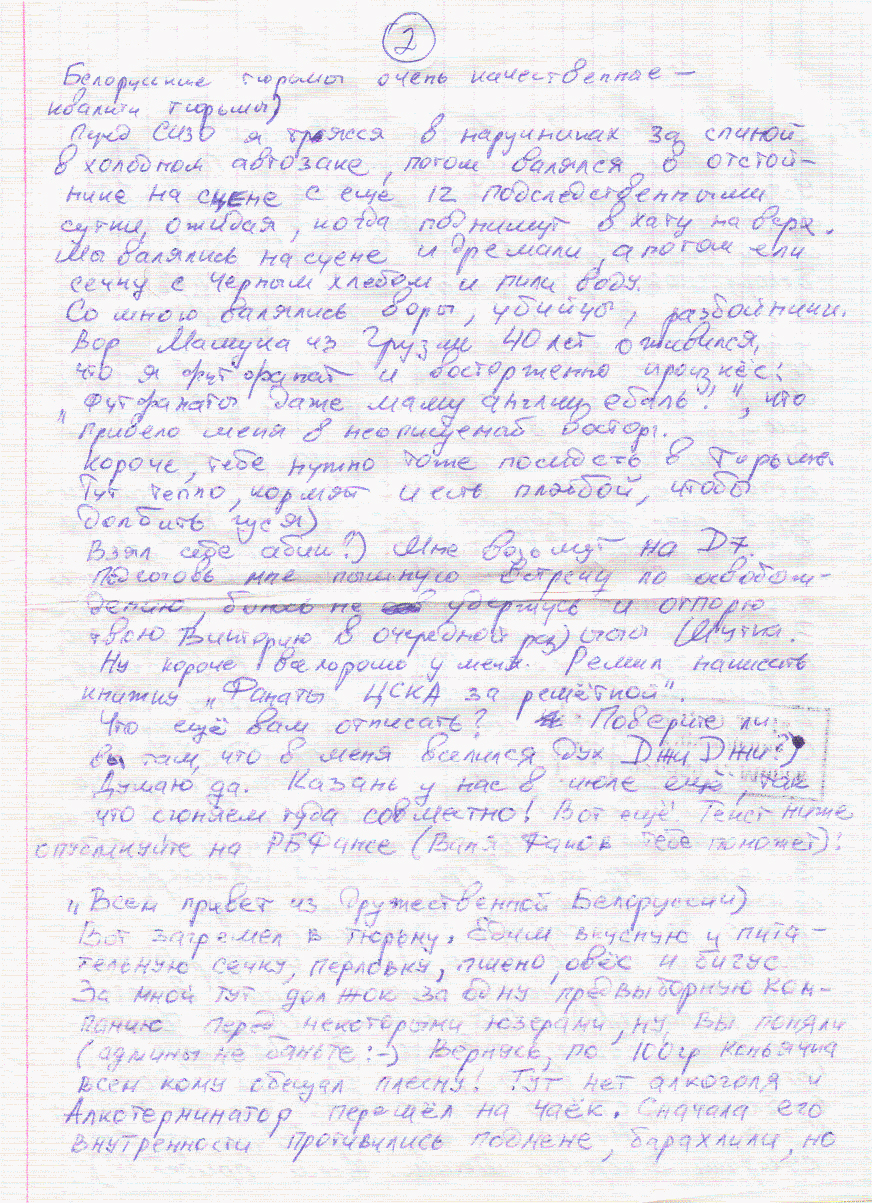 2
Белорусские тюрьмы очень качественные –
квалити тюрьмы)
Пред СИЗО я трясся в наручниках за спиной
в холодном автозаке, потом валялся в отстой-
нике на сцене с ещё 12 подследственными
сутки, ожидая, когда поднимут в хату на верх.
Мы валялись на сцене и дремали, а потом ели
сечку с чёрным хлебом и пили воду.
Со мною валялись воры, убийцы, разбойники.
Вор Мамука из Грузии 40 лет оживился,
что я фут.фанат и восторженно произнёс:
"Футфанаты даже маму англииу ебаль!", что
привело меня в неописуемый восторг.
Короче, тебе нужно тоже посидеть в тюрьме.
Тут тепло, кормят и есть плэйбой, чтобы
долбить гуся)
Взял себе абик?) Мне возьмут на D7.
Подготовь мне пышную встречу по освобож-
дению, боюсь не удержусь и отпорю
твою Викторию в очередной раз) ыыы Шутка.
Ну короче всё хорошо у меня. Решил написать
книжку "Фанаты ЦСКА за решёткой".
Что ещё вам отписать? Поверите ли
вы там, что в меня вселился дух ДжиДжи?)
Думаю да. Казань у нас в июле ещё, так
что сгоняем туда совместно! Вот ещё. Текст ниже
опубликуйте на РБФансе (Валя Фанов тебе поможет):
"Всем привет из дружественной Белоруссии)
Вот загремел в тюрьму. Едим вкусную и пита-
тельную сечку, перловку, пшено, овёс и бигус.
За мной тут должок за одну предвыборную ком-
панию перед некоторыми юзерами, ну, вы поняли
(админы не баньте :-) Вернусь, по 100гр коньячка
всем кому обещал плесну! Тут нет алкоголя и
Алкотерминатор перешёл на чаёк. Сначала его
внутренности противились подмене, барахлили, но